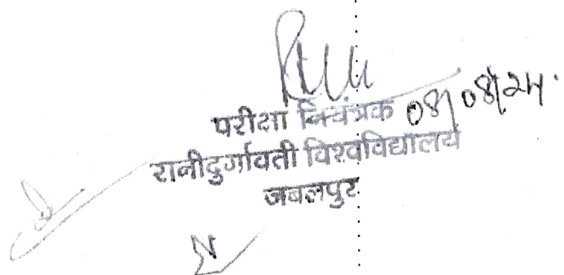 परीक्षा नियंत्रक 08/08/24.
रानीदुर्गावती विश्वविद्यालय
जबलपुर